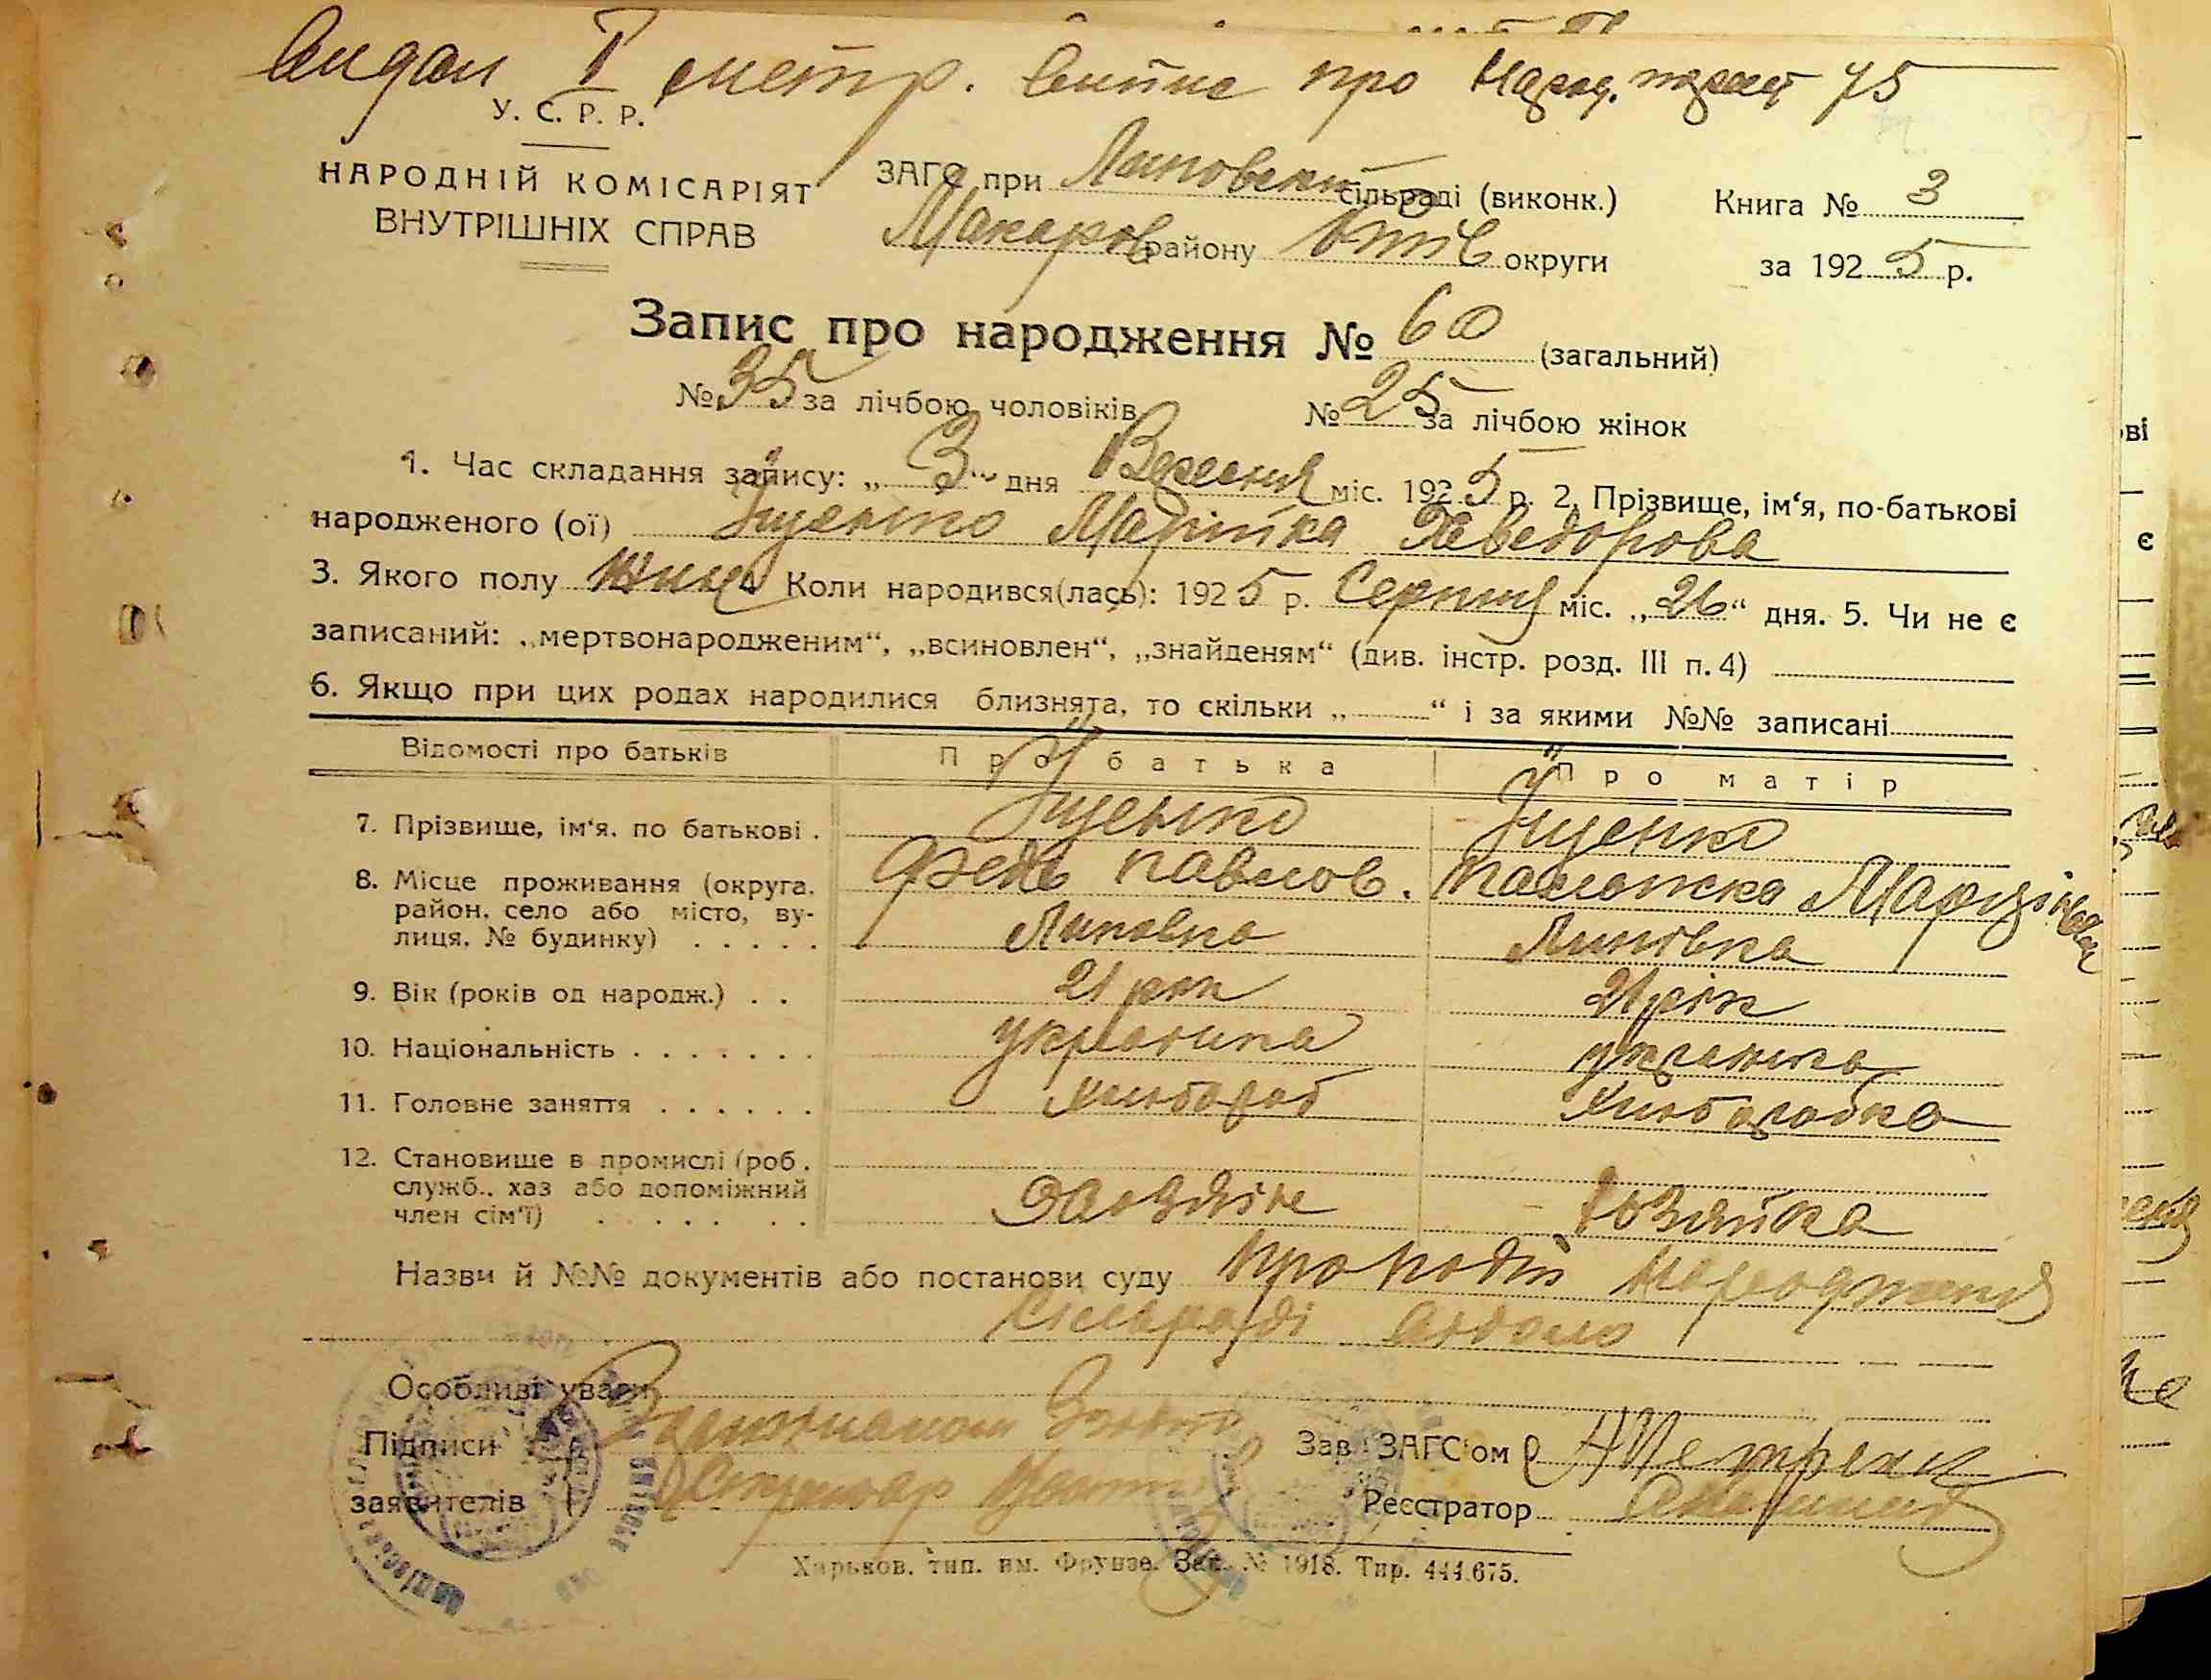 Видан I метр. Витяг про Народ. 75
У. С. Р. Р.
НАРОДНІЙ КОМІСАРІЯТ
ВНУТРІШНІХ СПРАВ
ЗАГС при Липовській сільраді (виконк.)
Макаров району Київ округи
Книга № 3
за 1925 р.
Запис про народження № 60 (загальний)
№ 35 за лічбою чоловіків № 25 за лічбою жінок
1. Час складання запису: „ 3 " дня Вересня міс. 1925 р. 2. Прізвище, ім'я, по-батькові
народженого (ої) Їщенко Марійка Хведорова
3. Якого полу жин. Коли народився(лась): 1925 р. Серпня міс. „26“ дня. 5. Чи не є
записаний: „мертвонародженим“, „всиновлен“, „знайденям“ (див. інстр. розд. III п. 4)
6. Якщо при цих родах народилися близнята, то скільки „ “ і за якими №№ записані
Відомості про батьків Про батька Про матір
7. Прізвище, ім'я, по батькові . Їщенко Їщенко
Федь Павлов. Палажка
8. Місце проживання (округа, район, село або місто, ву-
лиця, № будинку) . . . . . Липовка Липівка
9. Вік (років од народж.) . . 21 рік 21 рік
10. Національність . . . . . . . українка
11. Головне заняття . . . . . . хлібороб хліборобка
12. Становище в промислі (роб.,
служб., хаз або допоміжний
член сім'ї) . . . . . . хозяїн хозяйка
Назви й №№ документів або постанови суду про народження
Сільраді
Особливі уваги
Підписи
заявителів
Зав. ЗАГС'ом Петренк
Реєстратор
Харьков. тип. им. Фрунзе. Зак. № 1918. Тир. 444.675.